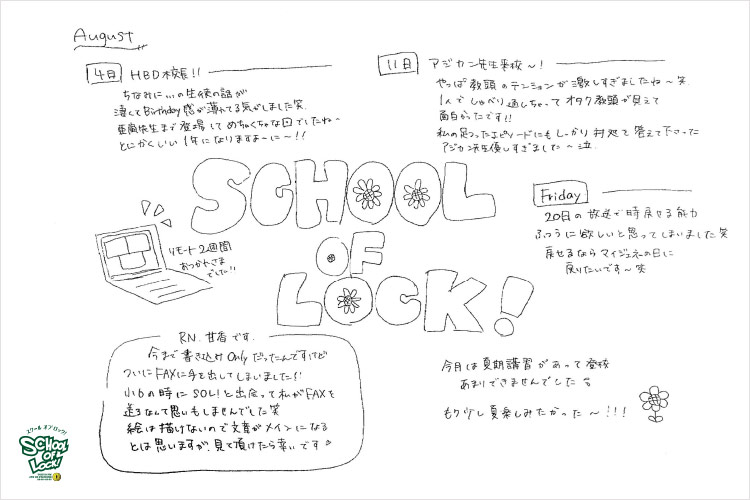 August
4日 HBD校長!!
ちなみに…の生徒の話が
凄くてBirthday感が薄れてる気がしました笑
亜蘭先生まで登場してめちゃくちゃな回でしたね〜
とにかくいい1年になりますよーに〜!!
11日 アジカン先生来校〜!
やっぱ教頭のテンションが激しすぎましたね〜笑
1人でしゃべり通しちゃってオタク教頭が見えて
面白かったです!!
私の送ったエピソードにもしっかり対処で答えて下さった
アジカン先生優しすぎました〜泣
SCHOOL
OF
LOCK!
Friday
20日の放送で時戻せる能力
ふつうに欲しいと思ってしまいました笑
戻せるならマイジェネの日に
戻りたいです〜笑
リモート2週間
おつかれさま
でした!!
RN. 甘香です.
今まで書き込みonlyだったんですけど
ついにFAXに手を出してしまいました!!
小6の時にSOL!と出会って私がFAXを
送るなんて思いもしませんでした笑
絵は描けないので文章がメインになる
とは思いますが、見て頂けたら幸いです
今月は夏期講習があって登校
あまりできませんでした
もう少し夏楽しみたかった〜!!!
スクール オブ ロック!
SCHOOL
OF
LOCK!